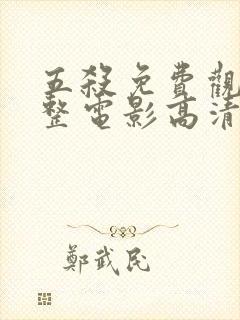 五殺免費觀
整電影高清
鄭武民